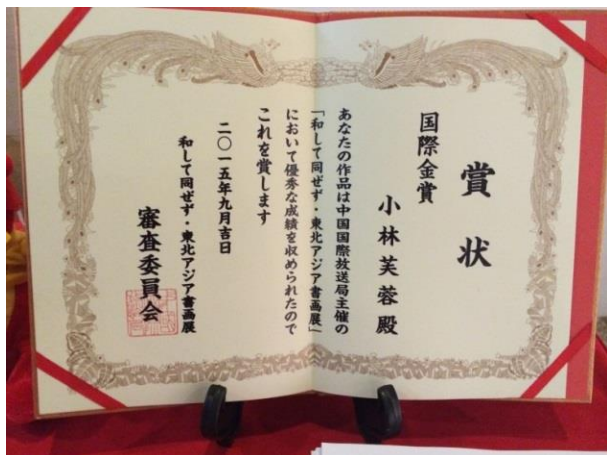 賞状
国際金賞
小林芙蓉殿
あなたの作品は中国国際放送局主催の
「和して同ぜず・東北アジア書画展」
において優秀な成績を収められたので
これを賞します
二〇一五年九月吉日
和して同ぜず・東北アジア書画展
審査委員会